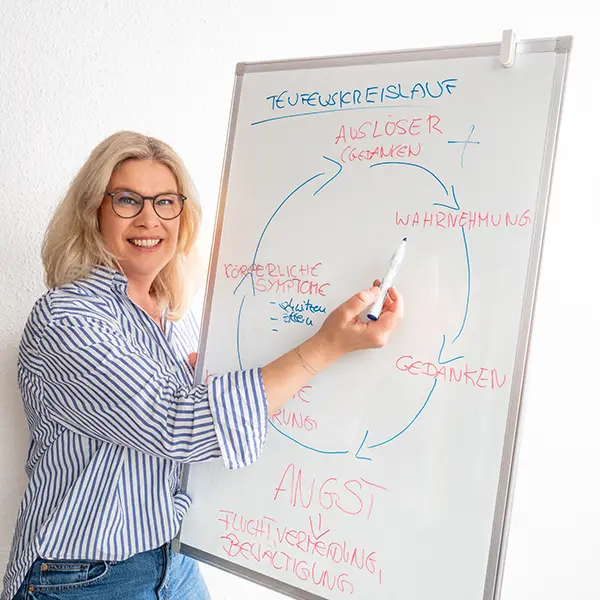 TEUFELSKREISLAUF
AUSLÖSER
(GEDANKEN
WAHRNEHMUNG
KÖRPERLICHE
SYMPTOME
- schwitzen
- zittern
-
GEDANKEN
ANGST
FLUCHT, VERMEIDUNG,
BEWÄLTIGUNG